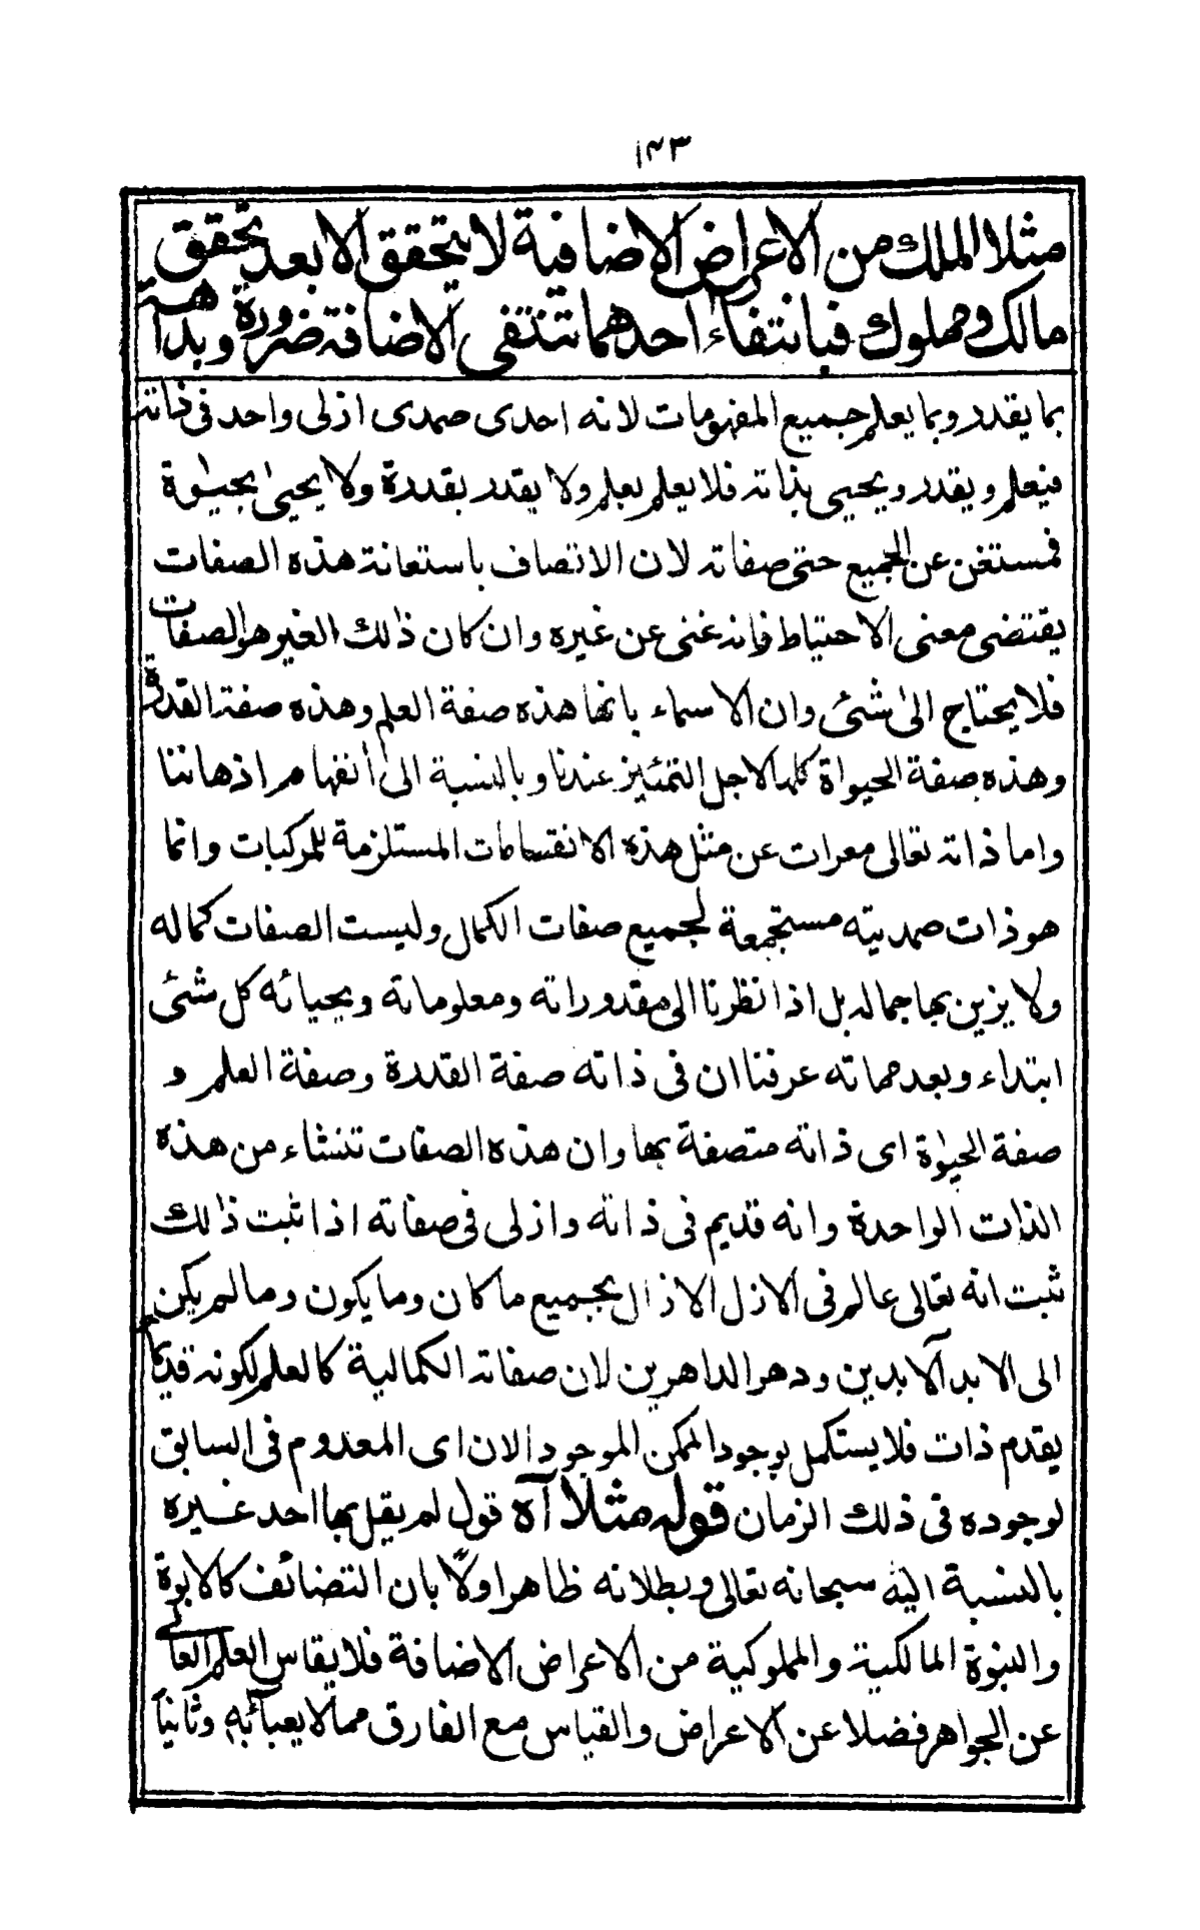 ١٤٣
مثلا الملك من الاعراض الاضافية لا يتحقق الا بعد تحقق
مالك ومملوك فبانتفاء احدهما تنتفى الاضافة ضرورة وبداهة
بما يقدر وبما يعلم جميع المفهومات لانه احدى صمدى ازلى واحد فى ذاته
فيعلم و يقدر و يحيى بذاته فلا يعلم بعلم ولا يقدر بقدرة ولا يحيى بحيٰوة
فمستغن عن الجميع حتى صفاته لان الاتصاف باستعانة هذه الصفات
يقتضى معنى الاحتياط فانه غنى عن غيره وان كان ذالك الغير هو الصفات
فلا يحتاج الى شئ وان الاسماء بانها هذه صفة العلم وهذه صفة القدرة
وهذه صفة الحيواة كلها لاجل التمئيز عندنا وبالنسبة الى أنفهام اذهاننا
واما ذاته تعالى معرات عن مثل هذه الانقسامات المستلزمة للمركبات وانما
هو ذات صمديته مستجمعة لجميع صفات الكمال وليست الصفات كماله
ولا يزين بها جماله بل اذا نظرنا الى مقدوراته ومعلوماته ويحيائه كل شئ
ابتداء وبعد مماته عرفنا ان فى ذاته صفة القدرة وصفة العلم و
صفة الحيٰوة اى ذاته متصفة بها وان هذه الصفات تنشاء من هذه
الذات الواحدة وانه قديم فى ذاته وازلى فى صفاته اذا ثبت ذالك
ثبت انه تعالى عالم فى الازل الازال بجميع ما كان وما يكون وما لم يكن
الى الابد الآبدين ودهر الداهرين لان صفاته الكمالية كالعلم لكونه قديما
يقدم ذات فلا يستكمل بوجود الممكن الموجود الان اى المعدوم فى السابق
لوجوده فى ذلك الزمان قوله مثلا آه قول لم يقل بها احد غيره
بالنسبة اليه سبحانه تعالى وبطلانه ظاهر اولًا بان التضائف كالابوة
والبنوة المالكية والمملوكية من الاعراض الاضافة فلا يقاس العلم العالى
عن الجواهر فضلا عن الاعراض والقياس مع الفارق مما لا يعبأ به وثانياً